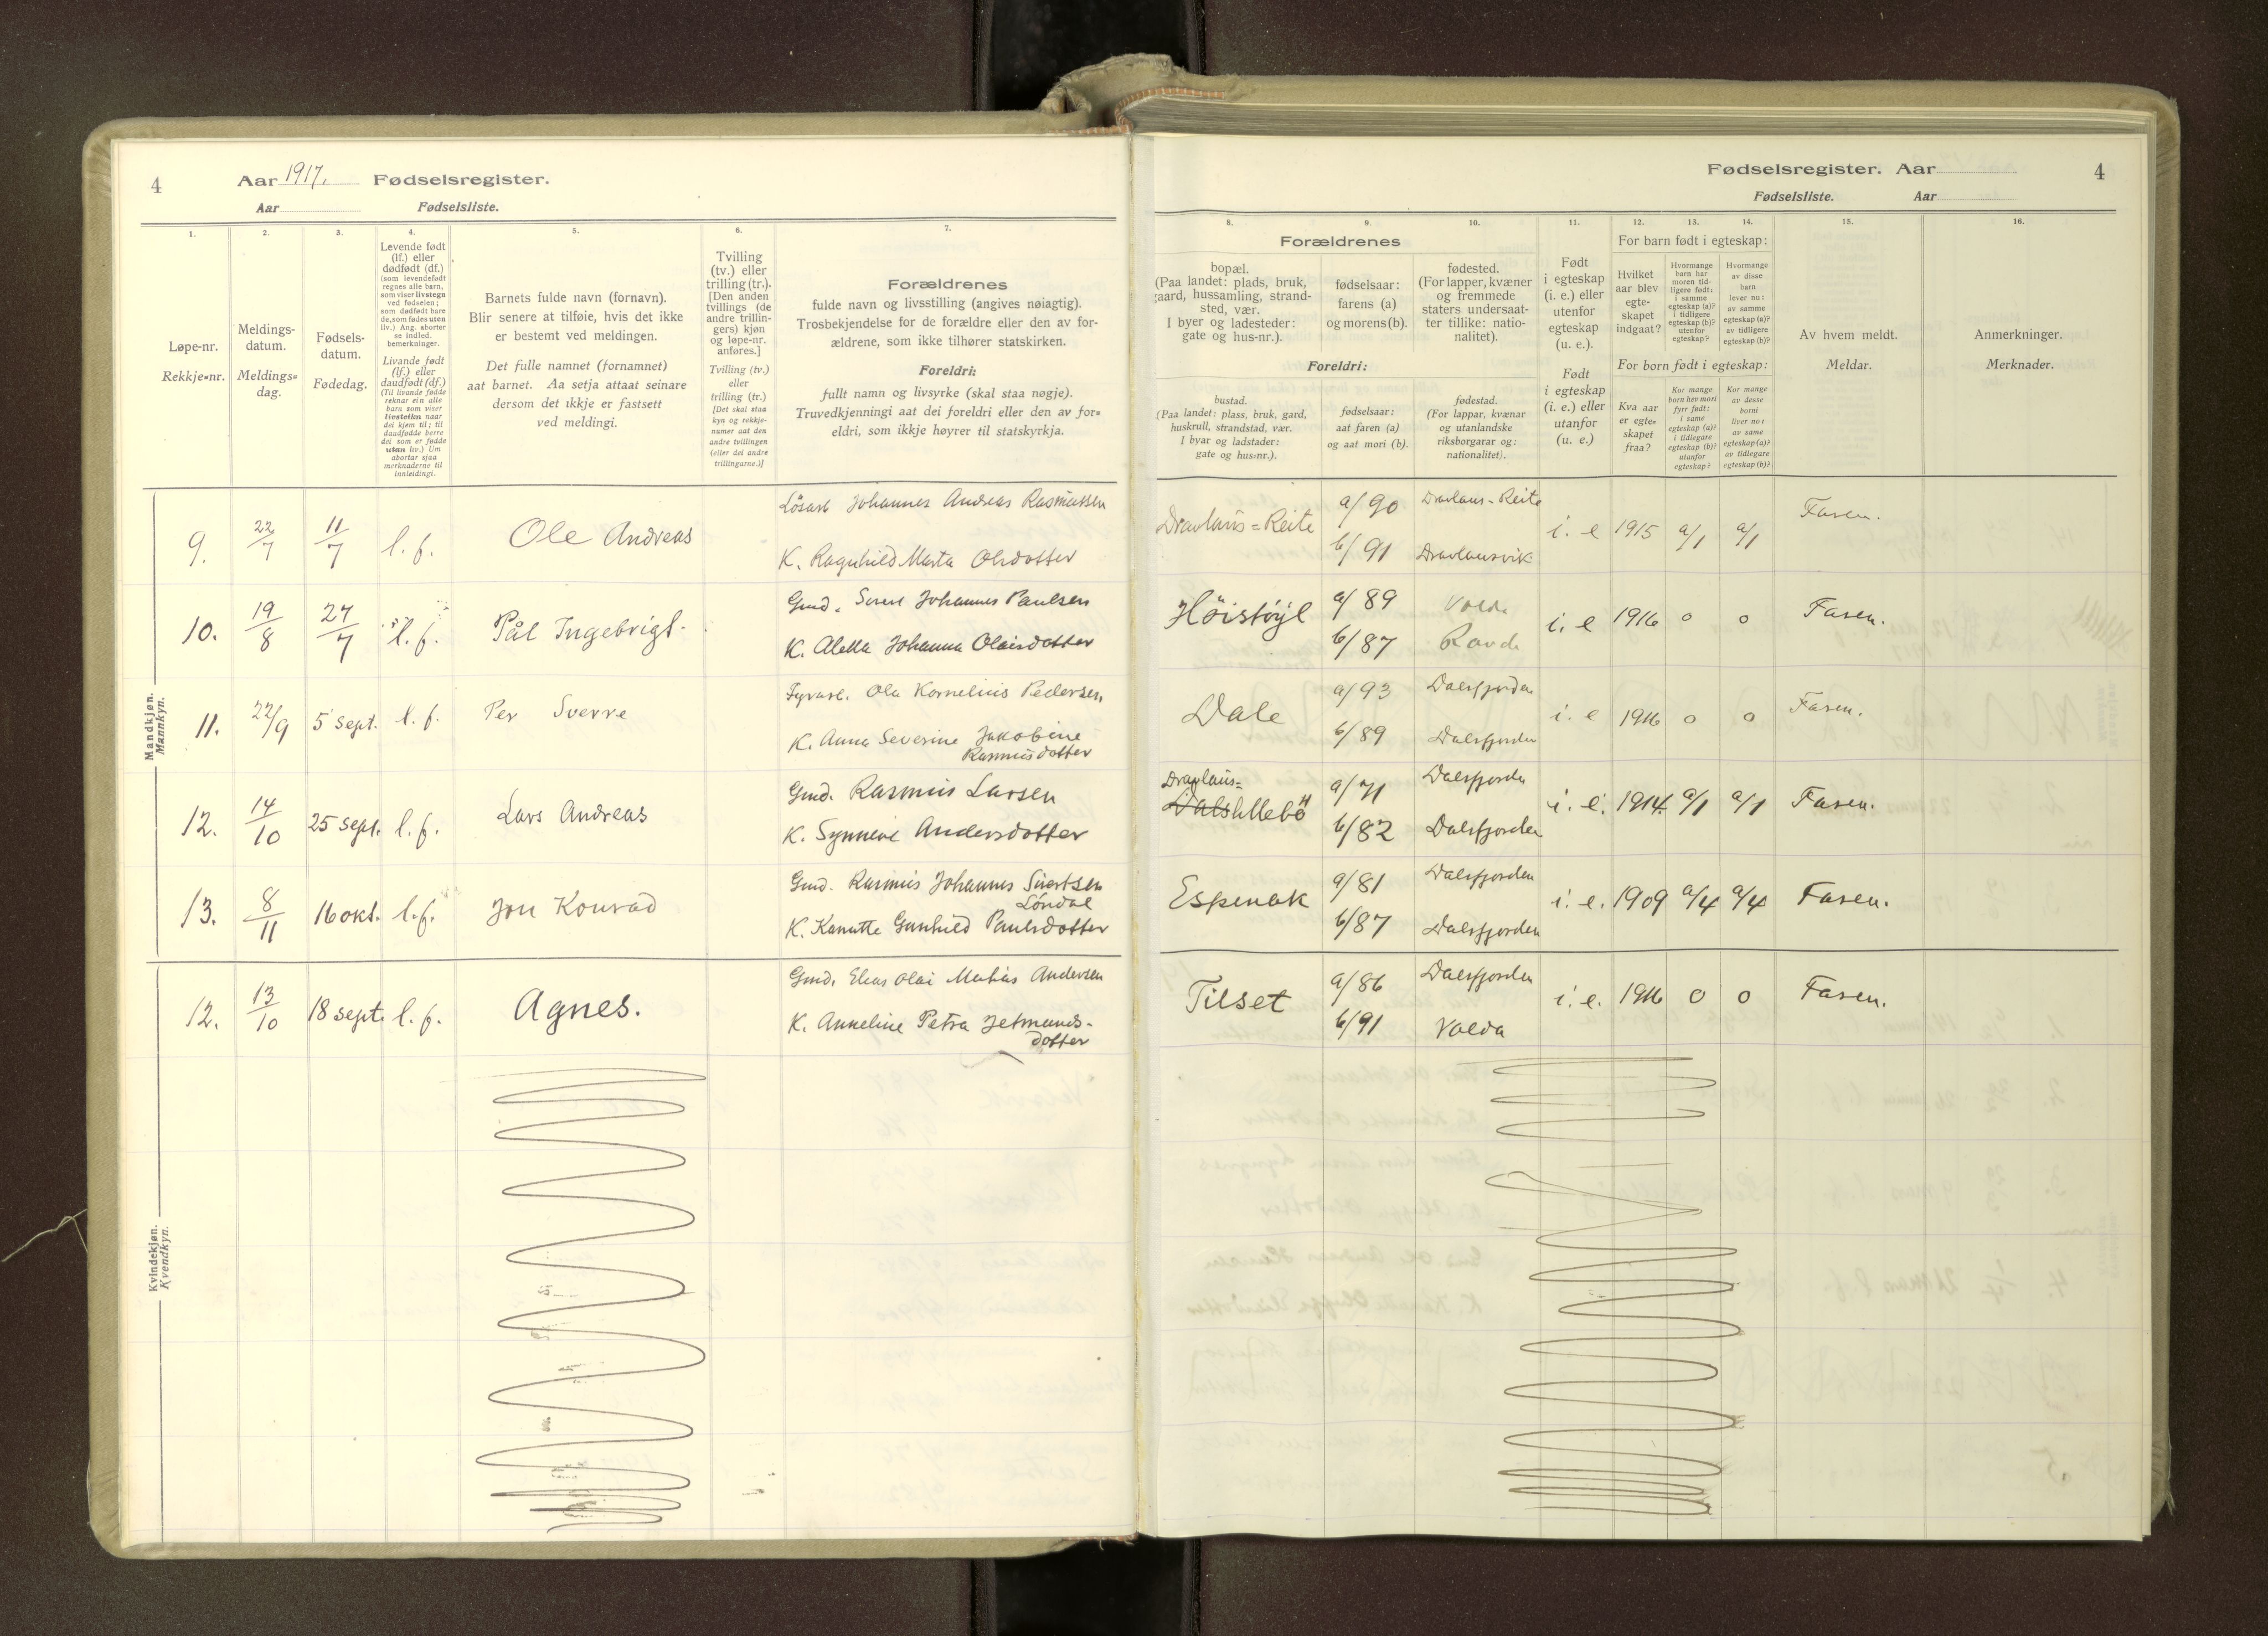 4
Aar 1917. Fødselsregister.
Aar Fødselsliste.
1.
2.
3.
4.
5.
6.
7.
Løpe-nr.
Rekkje-nr.
Meldings-
datum.
Meldings-
dag.
Fødsels-
datum.
Fødedag.
Levende født
(lf.) eller
dødfødt (df.)
(som levendefødt
regnes alle barn,
som viser livstegn
ved fødselen;
som dødfødt bare
de, som fødes uten
liv.) Ang. aborter
se indled.
bemerkninger.
Livande født
(lf.) eller
daudfødt (df.)
(Til livande fødde
reknar ein alle
born som viser
livsteikn naar
dei kjem til; til
daudfødde berre
dei som er fødde
utan liv.) Um
abortar sjaa
merknaderne til
innleidingi.
Barnets fulde navn (fornavn).
Blir senere at tilføie, hvis det ikke
er bestemt ved meldingen.
Det fulle namnet (fornamnet)
aat barnet. Aa setja attaat seinare
dersom det ikkje er fastsett
ved meldingi.
Tvilling
(tv.) eller
trilling (tr.).
[Den anden
tvillings (de
andre trillin-
gers) kjøn
og løpe-nr.
anføres.]
Tvilling (tv.)
eller
trilling (tr.)
[Det skal staa
kyn og rekkje-
numer aat den
andre tvillingen
(eller dei andre
trillingarne.)]
Forældrenes
fulde navn og livsstilling (angives nøiagtig).
Trosbekjendelse for de forældre eller den av for-
ældrene, som ikke tilhører statskirken.
Foreldri:
fullt namn og livsyrke (skal staa nøgje).
Truvedkjenningi aat dei foreldri eller den av for-
eldri, som ikkje høyrer til statskyrkja.
Mandkjøn.
Mannkyn.
9. 22/7 11/7 l. f. Ole Andreas
Løsarb. Johannes Andreas Rasmussen
K. Ragnhild Marta Olsdotter
10. 19/8 27/7 l. f. Pål Ingebrigt.
Gmd. Johannes Paulsen
K. Johanna Olaisdotter
11. 22/9 5 sept. l. f. Per Sverre
Ole Kornelius Pedersen
K. Anna Severine Jakobine
Rasmusdotter
12. 14/10 25 sept. l. f. Lars Andreas
Gmd. Rasmus Larsen
K. Synneve Andersdotter
13. 8/11 16 okt. l. f. Jon Konrad
Gmd. Rasmus Johannes Sivertsen
Løndal
K. Kanutte Gunhild Paulsdotter
Kvindekjøn.
Kvendkyn.
12. 13/10 18 sept. l. f. Agnes.
Gmd. Elias Olai Andersen
K. Anneline Petra Jetmunds-
dotter
Fødselsregister. Aar 4
Fødselsliste. Aar
8.
9.
10.
11.
12.
13.
14.
15.
16.
Forældrenes
bopæl.
(Paa landet: plads, bruk,
gaard, hussamling, strand-
sted, vær.
I byer og ladesteder:
gate og hus-nr.).
fødselsaar:
farens (a)
og morens (b).
fødested.
(For lapper, kvæner
og fremmede
staters undersaat-
ter tillike: natio-
nalitet).
Foreldri:
bustad.
(Paa landet: plass, bruk, gard,
huskrull, strandstad, vær.
I byar og ladstader:
gate og hus-nr.).
fødselsaar:
aat faren (a)
og aat mori (b).
fødestad.
(For lappar, kvænar
og utanlandske
riksborgarar og:
nationalitet).
Født
i egteskap
(i. e.) eller
utenfor
egteskap
(u. e.).
Født
i egteskap
(i. e.) eller
utanfor
(u. e.)
For barn født i egteskap:
Hvilket
aar blev
egte-
skapet
indgaat?
Hvormange
barn har
moren tid-
ligere født:
i samme
egteskap (a)?
i tidligere
egteskap (b)?
utenfor
egteskap?
Hvormange
av disse
barn
lever nu:
av samme
egteskap (a)?
av tidligere
egteskap (b)?
For born født i egteskap:
Kva aar
er egte-
skapet
fraa?
Kor mange
born hev mori
fyrr født:
i same
egteskap (a)?
i tidlegare
egteskap (b)?
utanfor
egteskap?
Kor mange
av desse
borni
liver no:
av same
egteskap (a)?
av tidlegare
egteskap (b)?
Av hvem meldt.
Meldar.
Anmerkninger.
Merknader.
Dravlaus=Reite a/90 Dravlaus-Reite i. e 1915 a/1 a/1 Faren.
b/91 Dravlausvik
Høistøyl a/89 Volda i. e 1916 0 0 Faren.
b/87 Rovde
Dale a/93 Dalsfjorden i. e 1916 0 0 Faren.
b/89 Dalsfjorden
Dravlaus=
a/71 Dalsfjorden i. e. 1914. a/1 a/1 Faren.
b/82 Dalsfjorden
Espenak a/81 Dalsfjorden i. e. 1909 a/4 a/4 Faren.
b/87 Dalsfjorden
Tilset a/86 Dalsfjorden i. e. 1916 0 0 Faren.
b/91 Volda